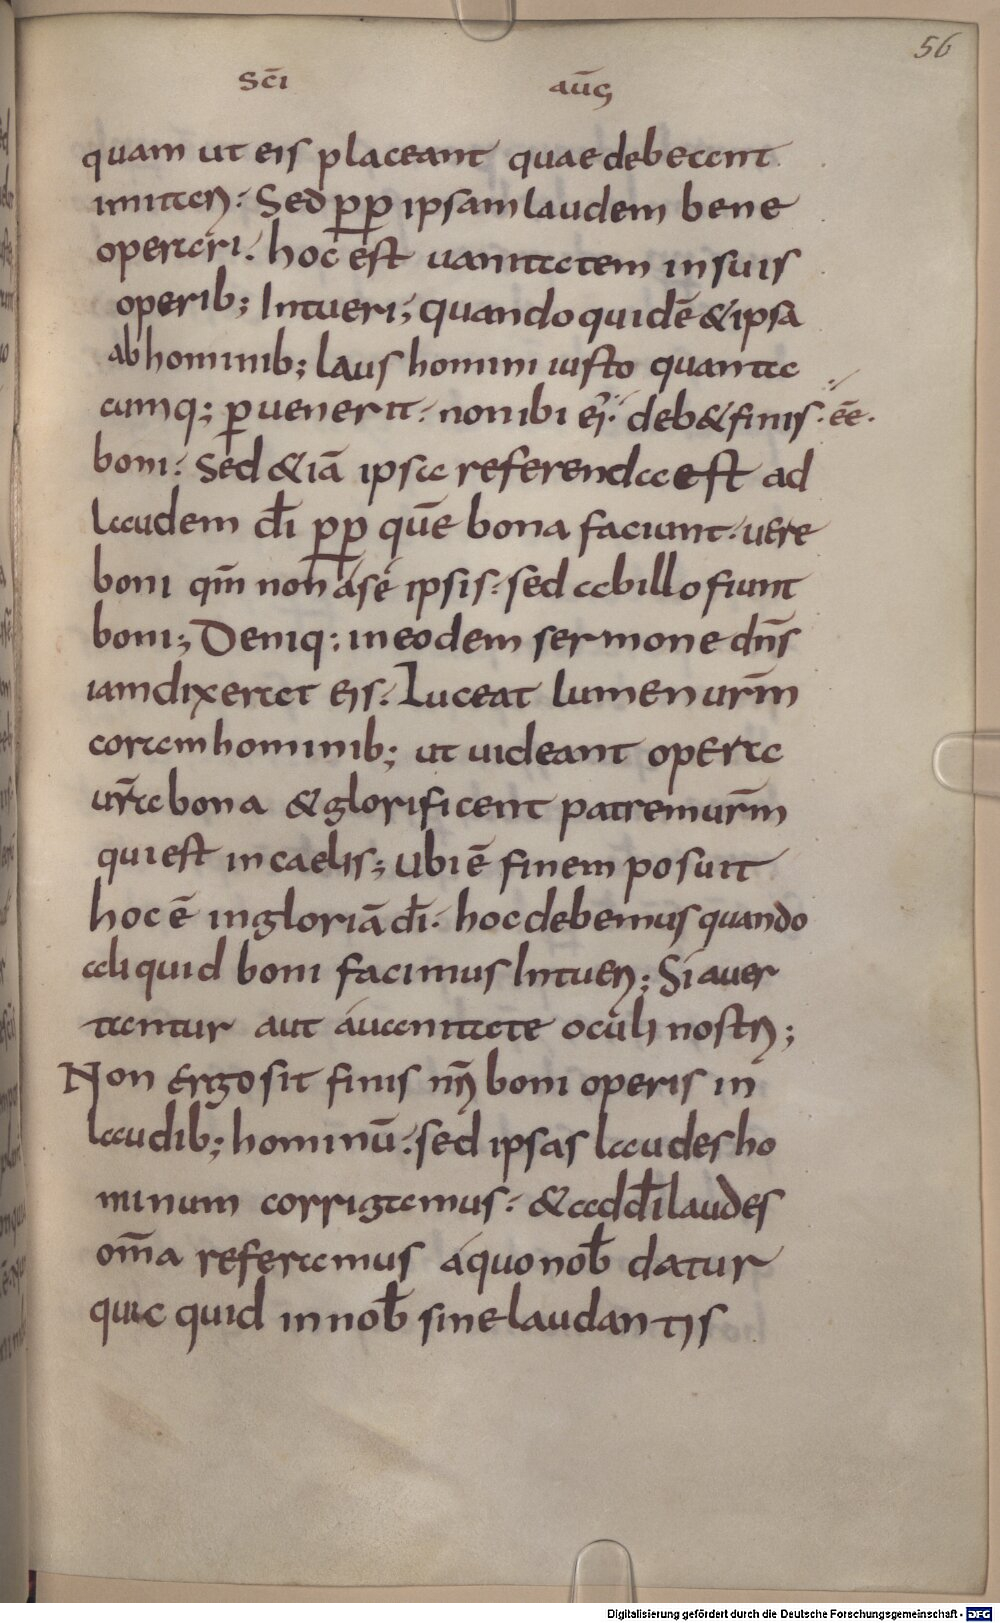 56
sc̄i aūg
quam ut eis placeant quae debeant
imitari: Sed p̱p̱ ipsam laudem bene
operari. hoc est uanitatem in suis
operib; Intueri; quando quidē & ipsa
ab hominib; laus homini iusto quanta
cumq; ꝑuenerit. non ibi ei deb& finis. ēē.
boni. Sed &iā ipsa referenda est ad
laudem dī p̱p̱ quē bona faciunt. uere
boni qm̄ non áse ipsis. sed ab illo fiunt
boni; Deniq: in eodem sermone dn̄s
iam dixerat eis. Luceat lumen ur̄m
coram hominib; ut uideant opera
ur̄a bona & glorificent patrem ur̄m
qui est in caelis; Ubi ē finem posuit
hoc ē in gloriā dī. hoc debemus quando
aliquid boni facimus Intueri; Si auer
tantur aut áuanitate oculi nostri;
Non Ergo sit finis nr̄i boni operis in
laudib; hominū. sed ipsas laudes ho
minum corrigamus. & ad dī laudes
om̄a referamus áquo nob̄ datur
quic quid in nob̄ sine laudantis
Digitalisierung gefördert durch die Deutsche Forschungsgemeinschaft - DFG